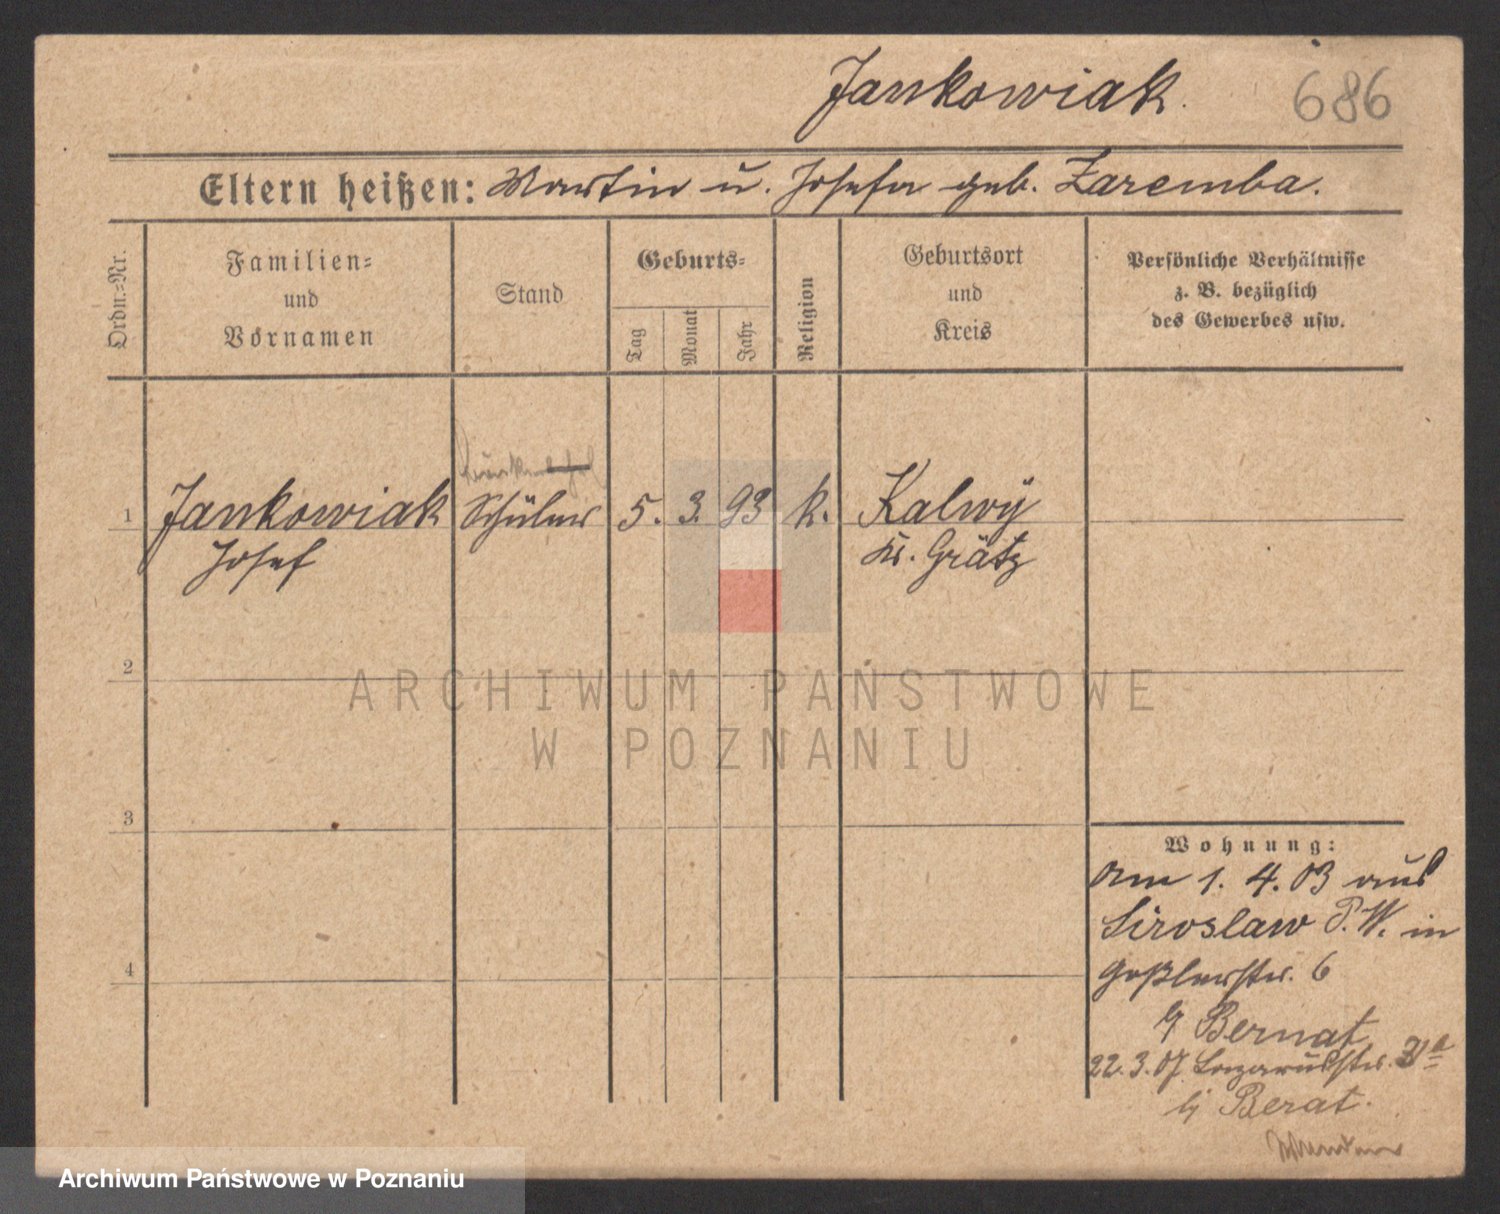 Jankowiak.
686
Eltern heißen: Martin u. Josefa geb. Zaremba.
Ordn.=Nr.
Familien=
und
Vornamen
Stand
Geburts=
Tag
Monat
Jahr
Religion
Geburtsort
und
Kreis
Persönliche Verhältnisse
z. B. bezüglich
des Gewerbes usw.
1
Jankowiak
Josef
Schüler
5. 3. 93
k.
Kalwy
Kr. Grätz
2
3
4
ARCHIWUM PAŃSTWOWE
W POZNANIU
Wohnung:
Am 1. 4. 03 aus
Siroslaw P. W. in
Goßlerstr. 6
b/ Bernat
22. 3. 07. Lazarusstr.
b/ Berat.
Archiwum Państwowe w Poznaniu